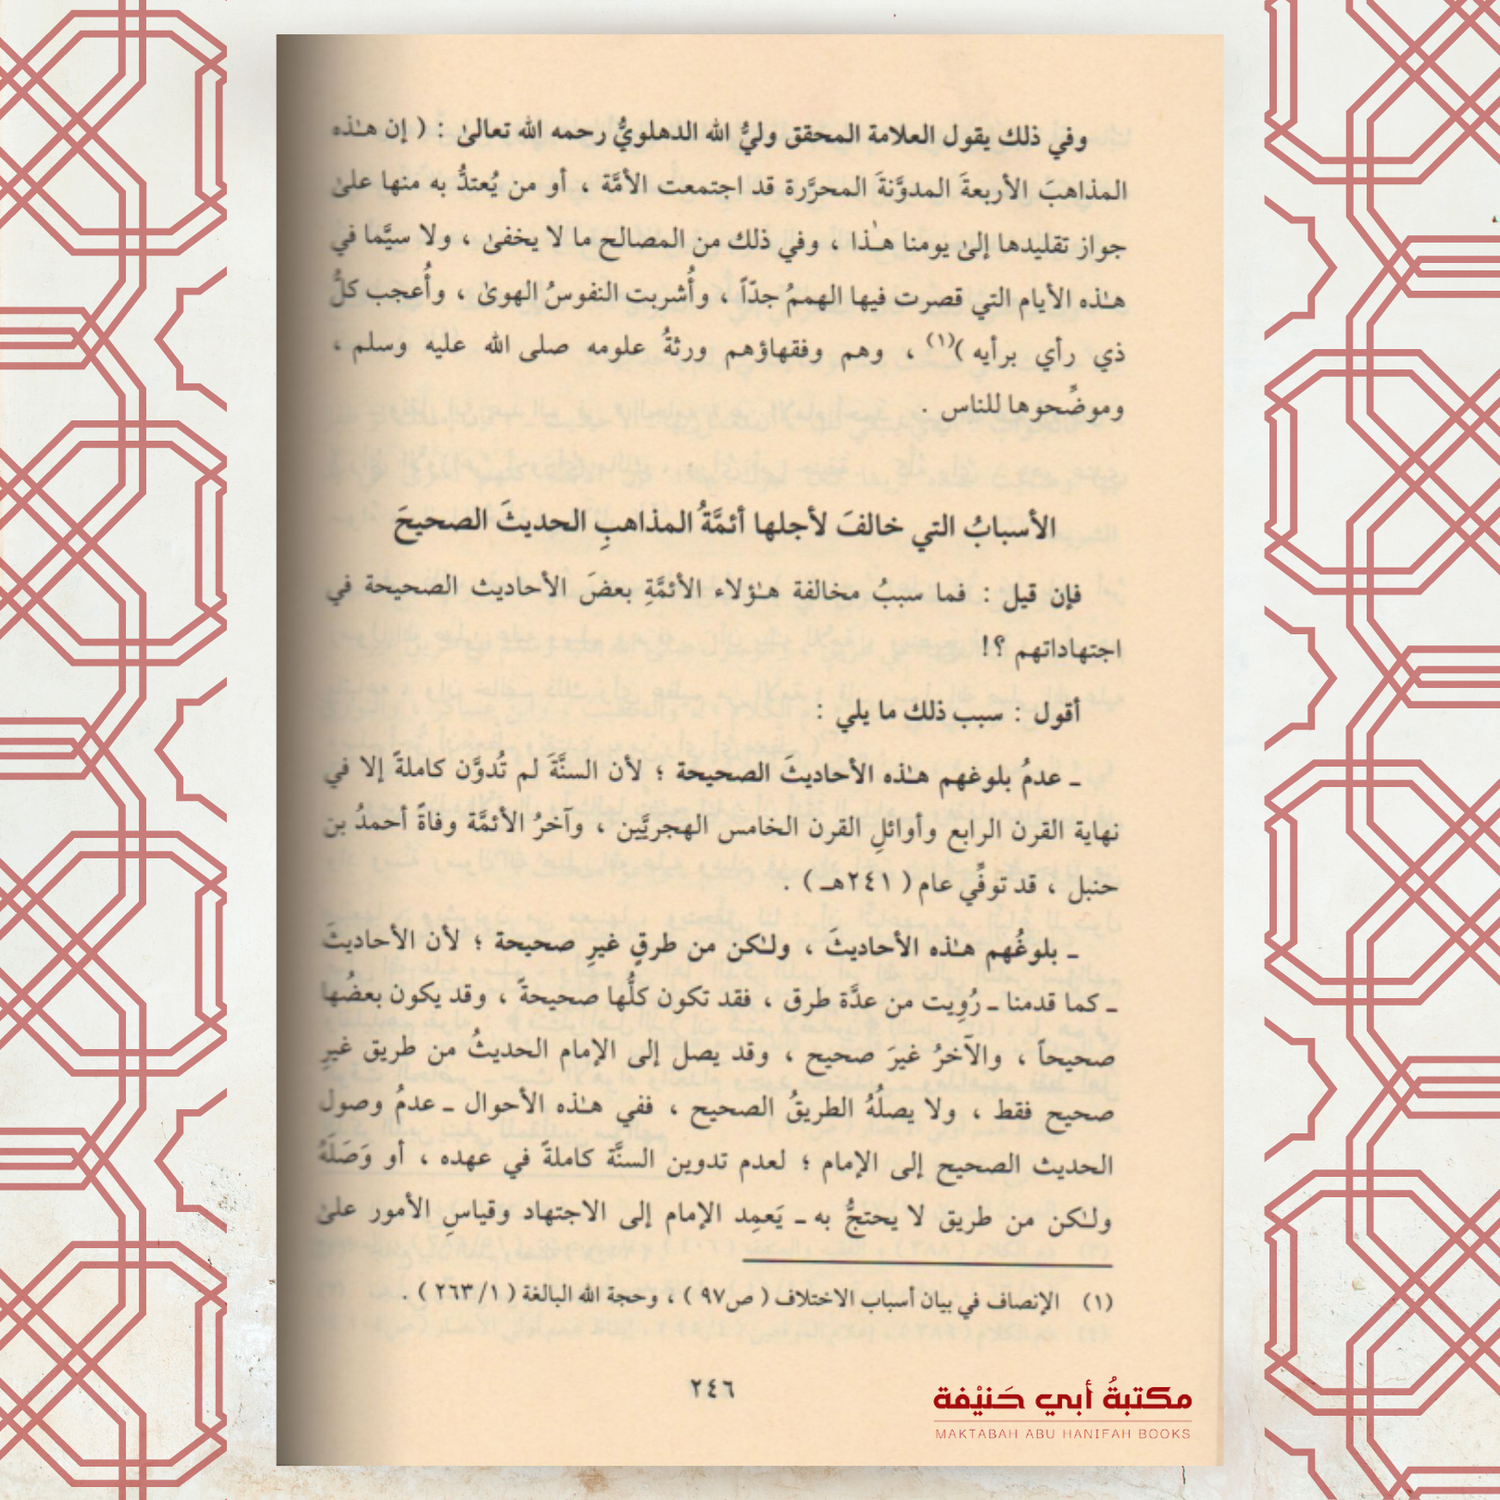 وفي ذلك يقول العلامة المحقق وليُّ الله الدهلويُّ رحمه الله تعالىٰ : ( إن هـٰذه
المذاهبَ الأربعةَ المدوَّنةَ المحرَّرة قد اجتمعت الأمَّة ، أو من يُعتدُّ به منها علىٰ
جواز تقليدها إلىٰ يومنا هـٰذا ، وفي ذلك من المصالح ما لا يخفىٰ ، ولا سيَّما في
هـٰذه الأيام التي قصرت فيها الهممُ جدّاً ، وأُشربت النفوسُ الهوىٰ ، وأُعجب كلُّ
ذي رأي برأيه )(١) ، وهم وفقهاؤهم ورثةُ علومه صلى الله عليه وسلم ،
وموضِّحوها للناس .
الأسبابُ التي خالفَ لأجلها أئمَّةُ المذاهبِ الحديثَ الصحيحَ
فإن قيل : فما سببُ مخالفة هـٰؤلاء الأئمَّةِ بعضَ الأحاديث الصحيحة في
اجتهاداتهم ؟!
أقول : سبب ذلك ما يلي :
ـ عدمُ بلوغهم هـٰذه الأحاديثَ الصحيحة ؛ لأن السنَّةَ لم تُدوَّن كاملةً إلا في
نهاية القرن الرابع وأوائلِ القرن الخامس الهجريَّين ، وآخرُ الأئمَّة وفاةً أحمدُ بن
حنبل ، قد توفِّي عام ( ٢٤١هـ ) .
ـ بلوغُهم هـٰذه الأحاديثَ ، ولـٰكن من طرقٍ غيرِ صحيحة ؛ لأن الأحاديثَ
ـ كما قدمنا ـ رُوِيت من عدَّة طرق ، فقد تكون كلُّها صحيحةً ، وقد يكون بعضُها
صحيحاً ، والآخرُ غيرَ صحيح ، وقد يصل إلى الإمام الحديثُ من طريق غيرِ
صحيح فقط ، ولا يصلُهُ الطريقُ الصحيح ، ففي هـٰذه الأحوال ـ عدمُ وصول
الحديث الصحيح إلى الإمام ؛ لعدم تدوين السنَّة كاملةً في عهده ، أو وَصَلَهُ
ولـٰكن من طريق لا يحتجُّ به ـ يَعمِد الإمام إلى الاجتهاد وقياسِ الأمور علىٰ
(١) الإنصاف في بيان أسباب الاختلاف ( ص٩٧ ) ، وحجة الله البالغة ( ١/ ٢٦٣ ) .
٢٤٦
مكتبةُ أبي حَنيْفة
MAKTABAH ABU HANIFAH BOOKS